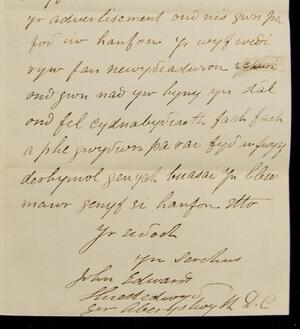 yr advertisement ond nis gwn pa
fod iw hanfon Yr wyf wedi
ryw fan newydiaduron
ond gwn nad yw hyny yn dâl
ond fel cydnabydiaeth fach fach
a phe gwydwn pa rai fyd
derbyniol genych buasai yn bleser
mawr genyf ei hanfon etto
Yr eidoch
yn serchus
John Edwards
ger Aberystwyth D. C